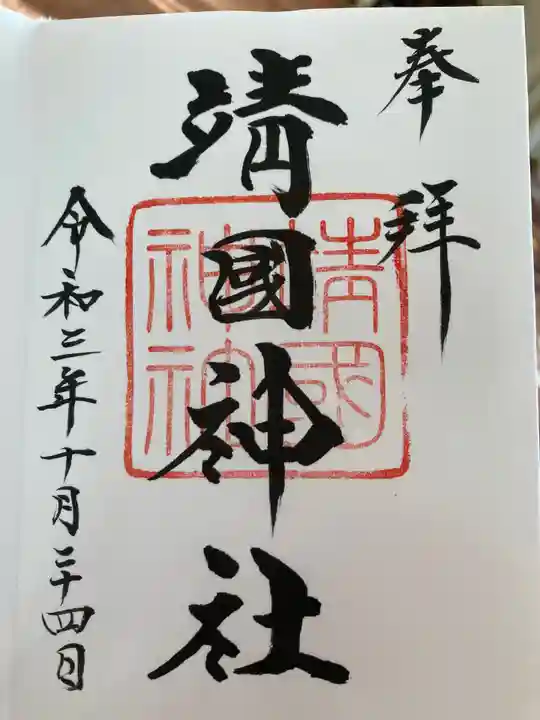 奉拝
靖國神社
靖國
神社
令和三年十月二十四日